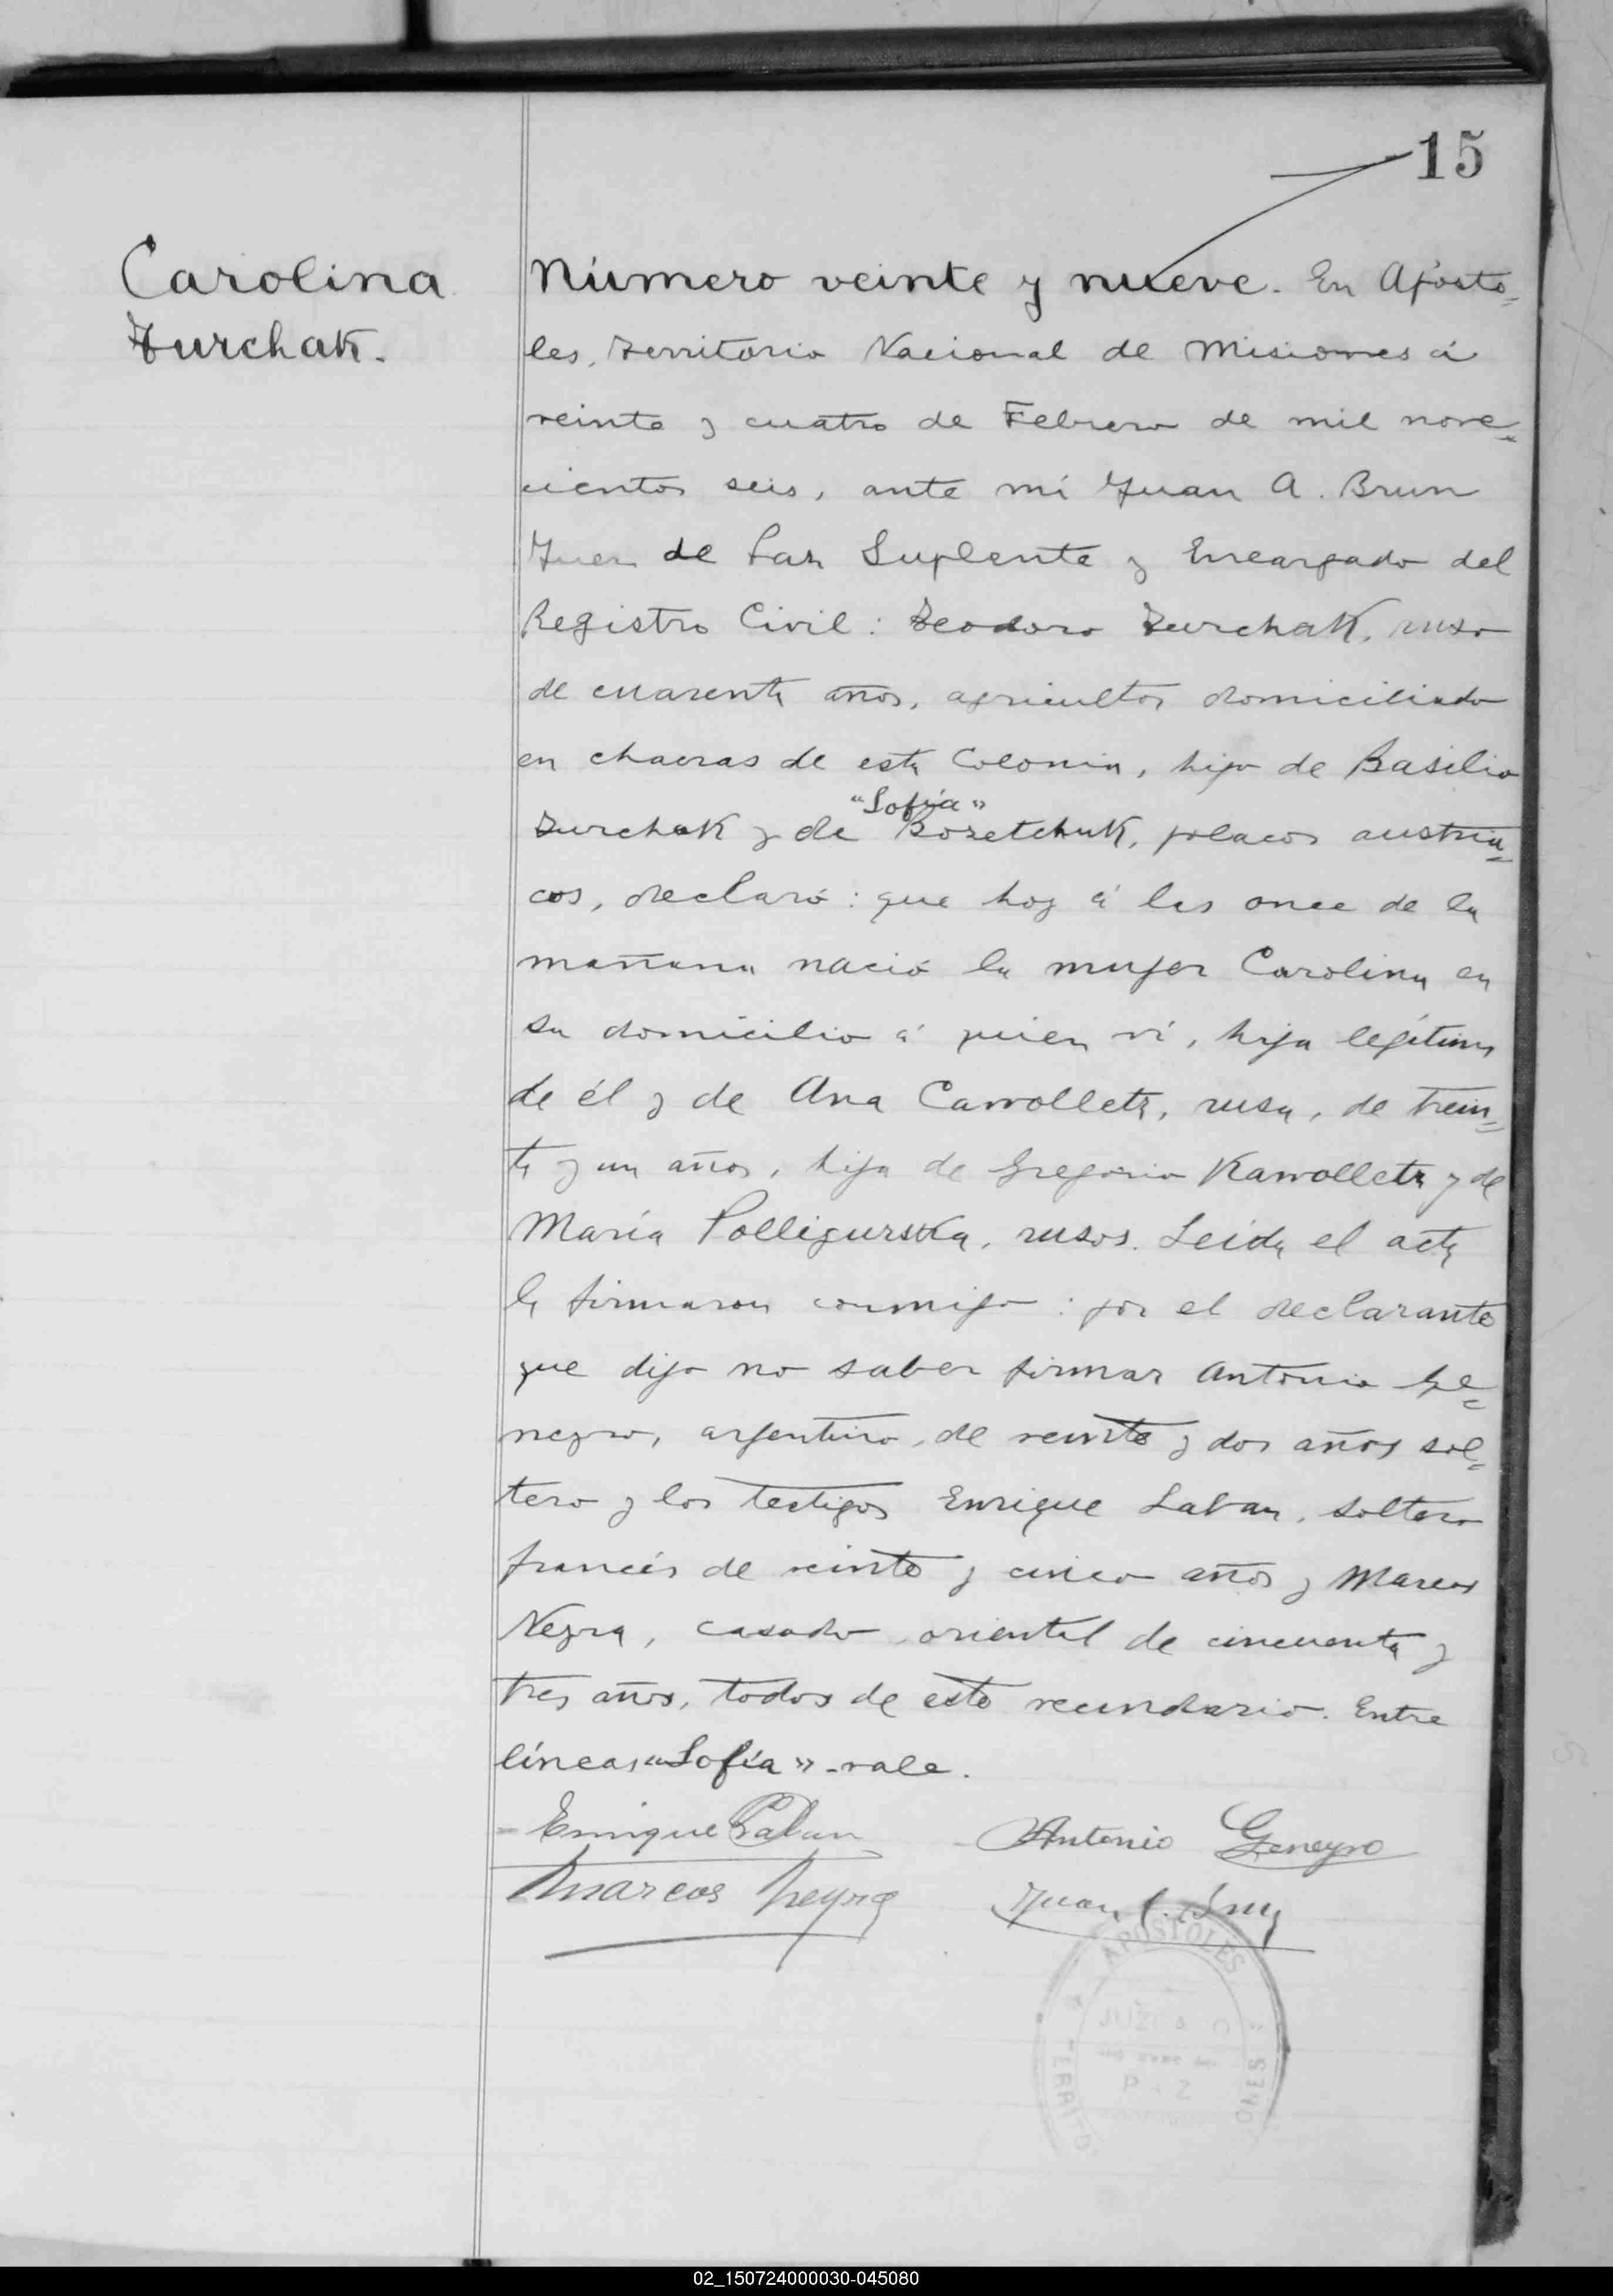 15
Carolina
Turchak.
Número veinte y nueve. En Aposto=
les, Territorio Nacional de Misiones á
veinte y cuatro de Febrero de mil nove=
cientos seis, ante mí Juan A. Brun
Juez de Paz Suplente y Encargado del
Registro Civil: Teodoro Turchak, ruso
de cuarenta años, agricultor domiciliado
en chacras de esta Colonia, hijo de Basilio
"Sofía"
Turchak y de Bozetchuk, polacos austria=
cos, declaró: que hoy á las once de la
mañana nació la mujer Carolina en
su domicilio á quien ví, hija legítima
de él y de Ana Cawolletz, rusa, de trein=
ta y un años, hija de Gregorio Kawolletz y de
María Polligurska, rusos. Leida el acta
la firmaron conmigo: por el declarante
que dijo no saber firmar Antonio Ge=
neyro, argentino, de veinte y dos años sol=
tero y los testigos Enrique Laban, soltero
francés de veinte y cinco años y Marcos
Neyra, casado, oriental de cincuenta y
tres años, todos de este vecindario. Entre
líneas "Sofía" - vale.
Enrique Laban Antonio Geneyro
Marcos Neyra Juan A. Brun
APOSTOLES
JUZGADO
PAZ
02_150724000030-045080